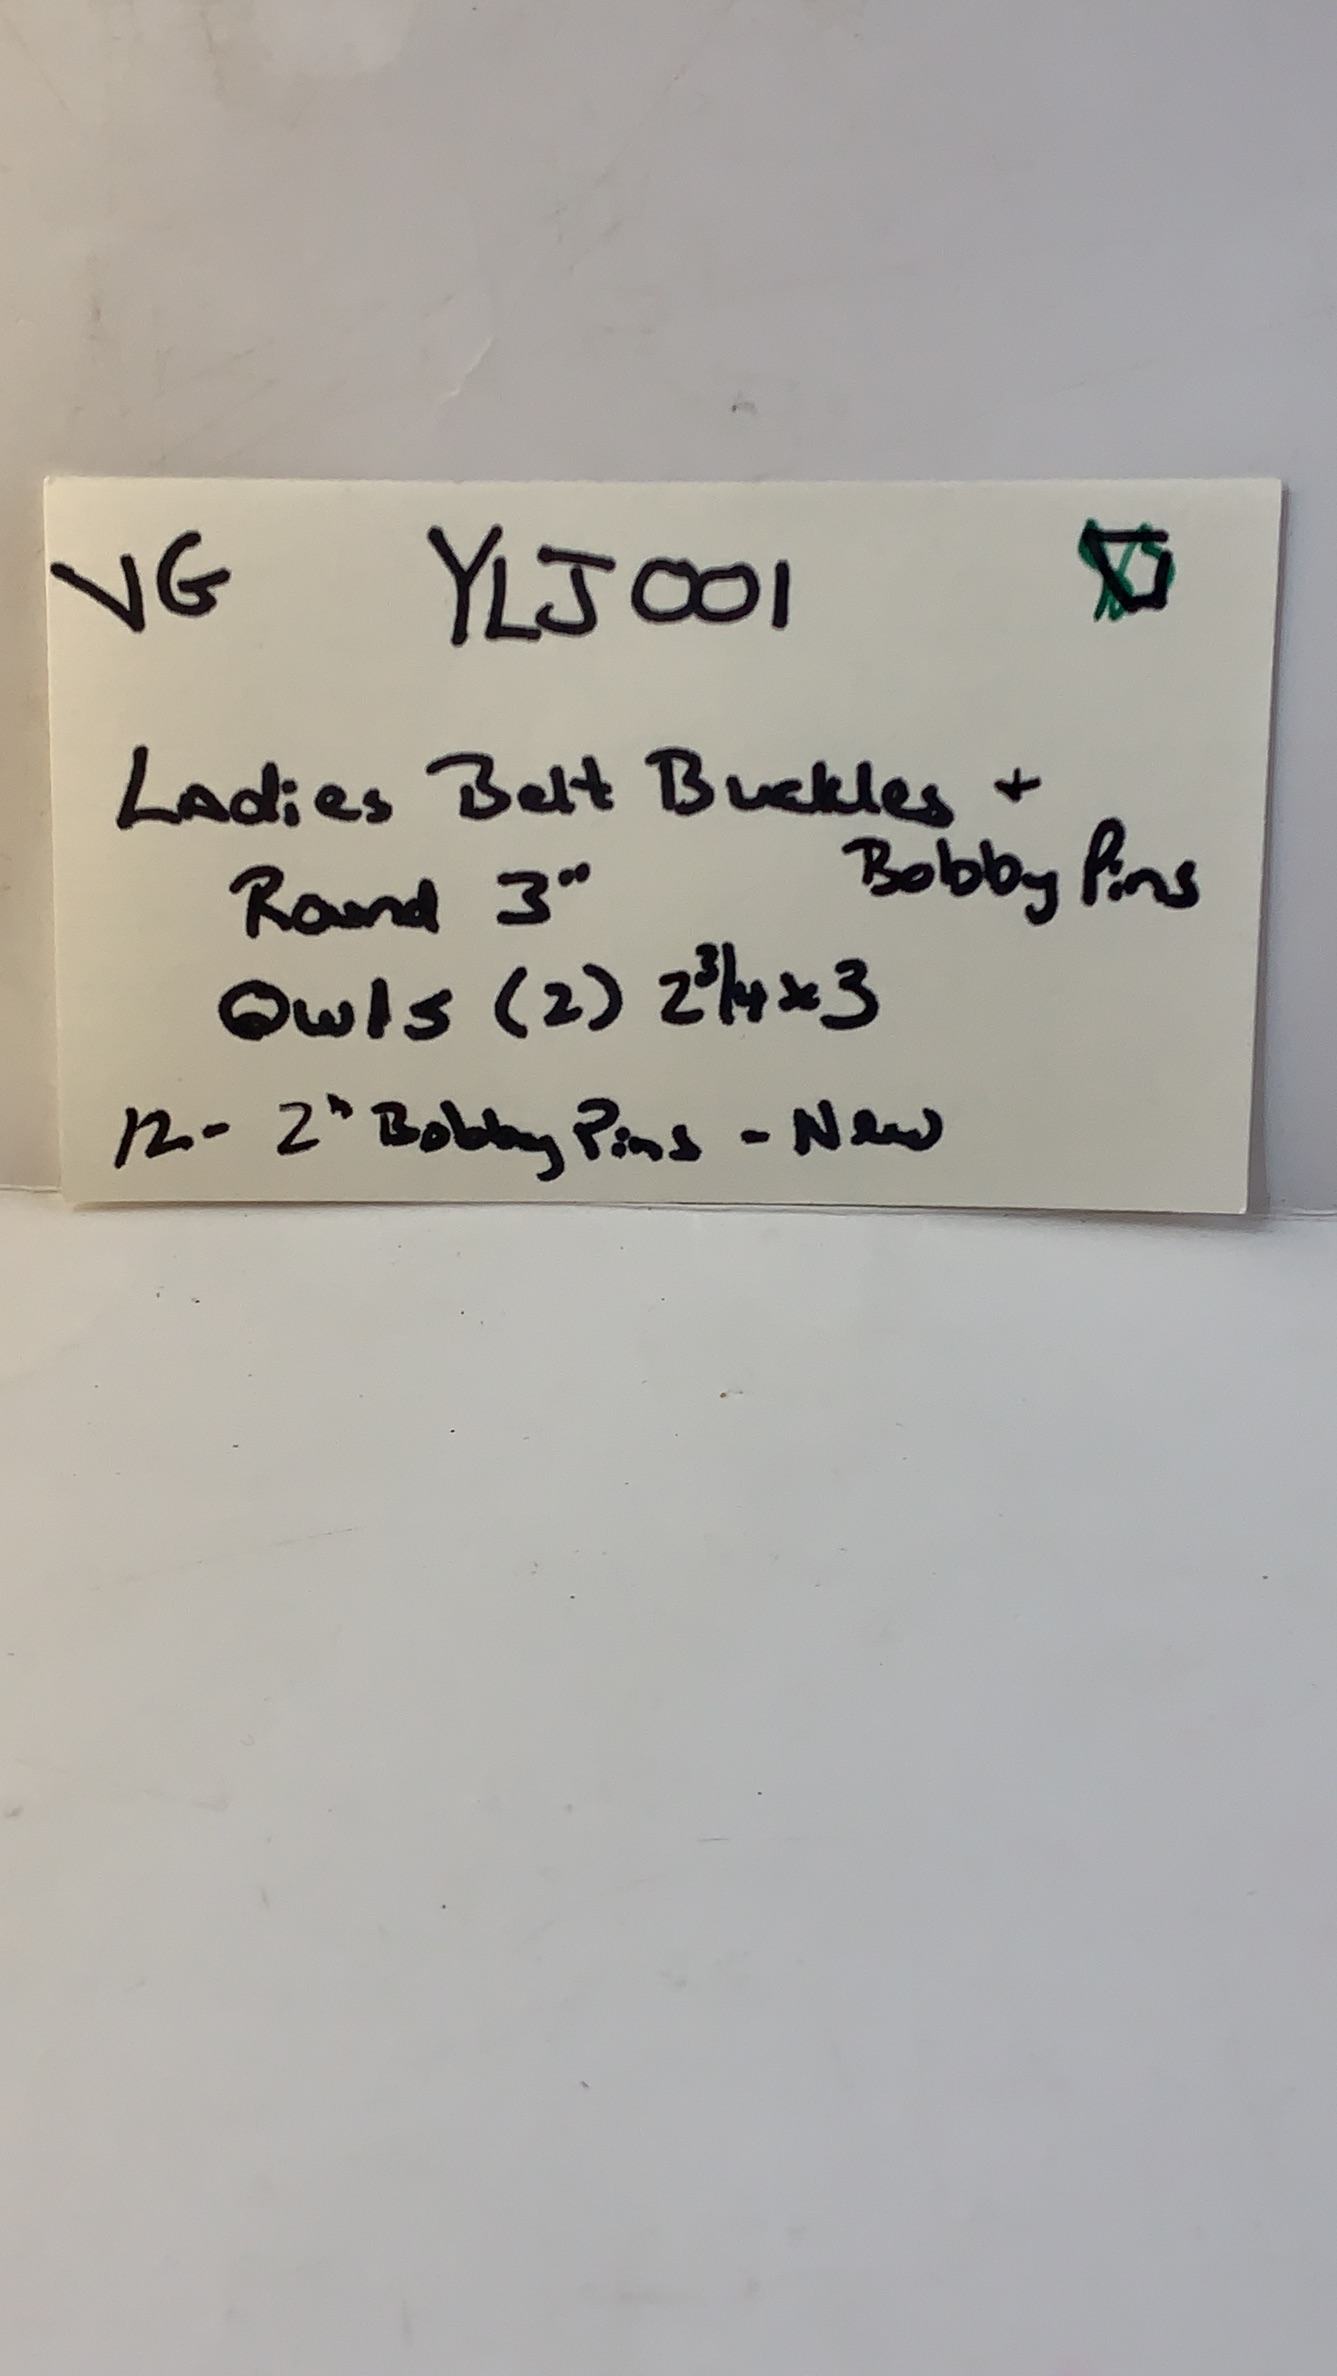 VG YLJ001
Ladies Belt Buckles +
Bobby Pins
Round 3"
Owls (2) 2 3/4 x 3
12 - 2" Bobby Pins - New